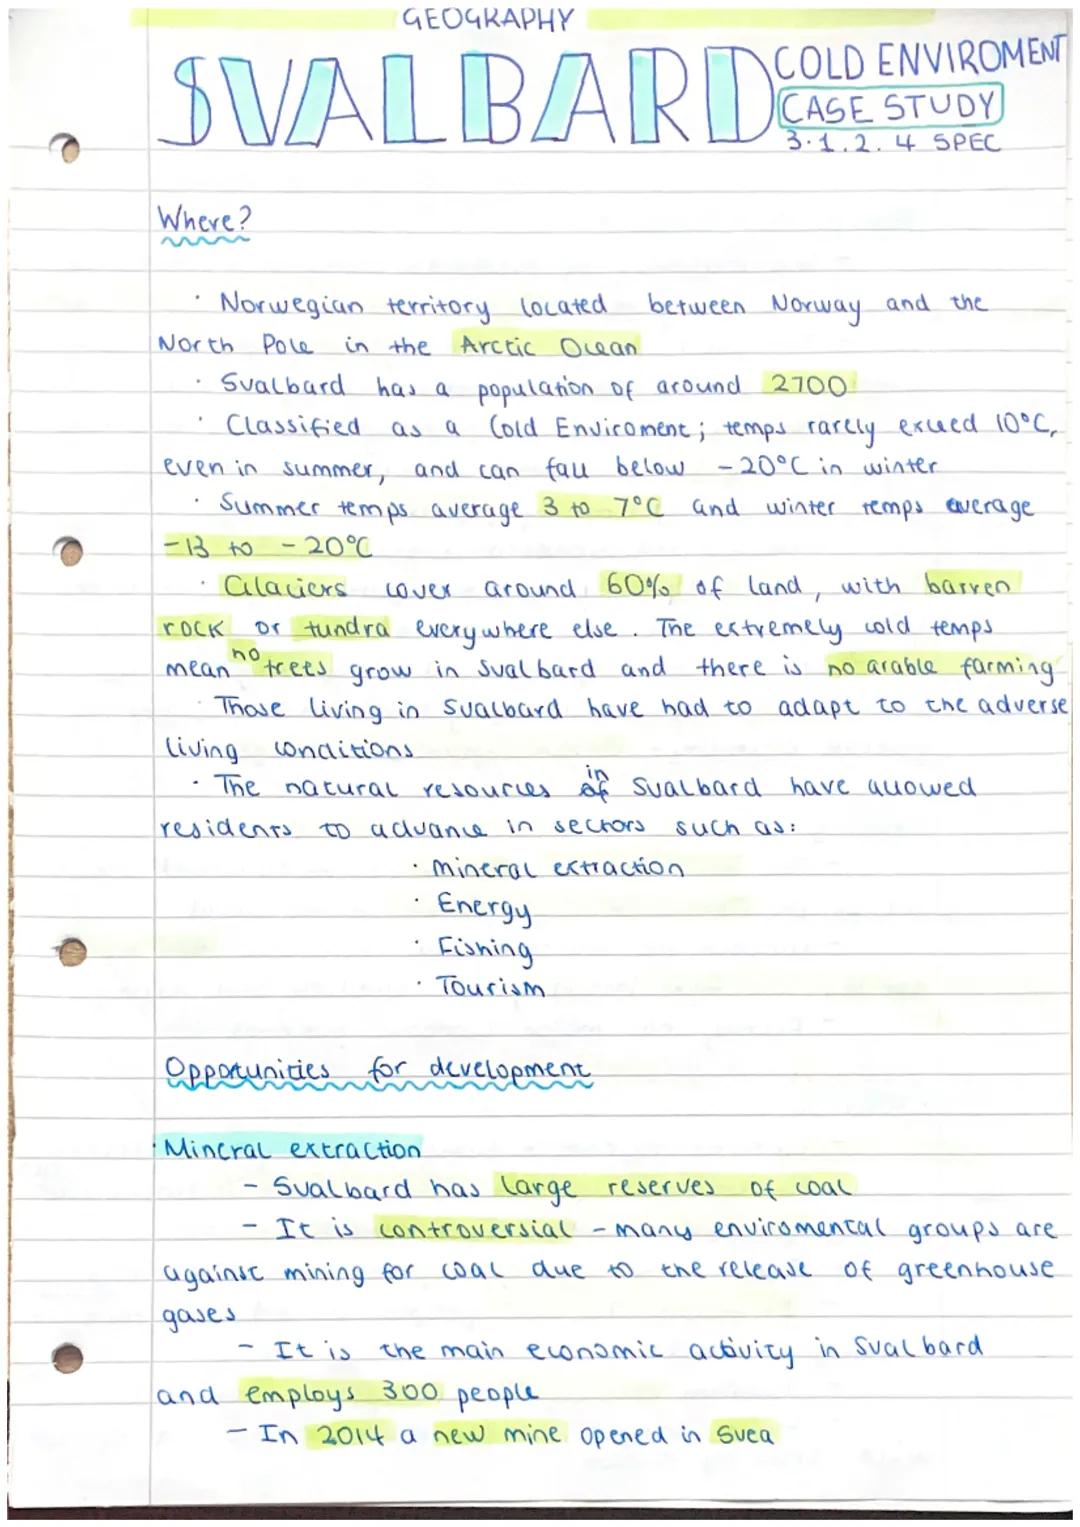 GEOGRAPHY
SVALBARD
COLD ENVIROMENT
CASE STUDY
3.1.2.4 SPEC
Where?
· Norwegian territory located between Norway and the
North Pole in the Arctic Ocean
· Svalbard has a population of around 2700
· Classified as a Cold Enviroment; temps rarely exceed 10°C,
even in summer, and can fall below -20°C in winter
· Summer temps average 3 to 7°C and winter temps average
-13 to -20°C
· Glaciers cover around 60% of land, with barren
rock or tundra everywhere else. The extremely cold temps
mean no trees grow in Svalbard and there is no arable farming
· Those living in Svalbard have had to adapt to the adverse
living conditions
· The natural resources in Svalbard have allowed
residents to advance in sectors such as:
· Mineral extraction
· Energy
· Fishing
· Tourism
Opportunities for development
· Mineral extraction
- Svalbard has large reserves of coal
- It is controversial - many enviromental groups are
against mining for coal due to the release of greenhouse
gases
- It is the main economic activity in Svalbard
and employs 300 people
- In 2014 a new mine opened in Svea